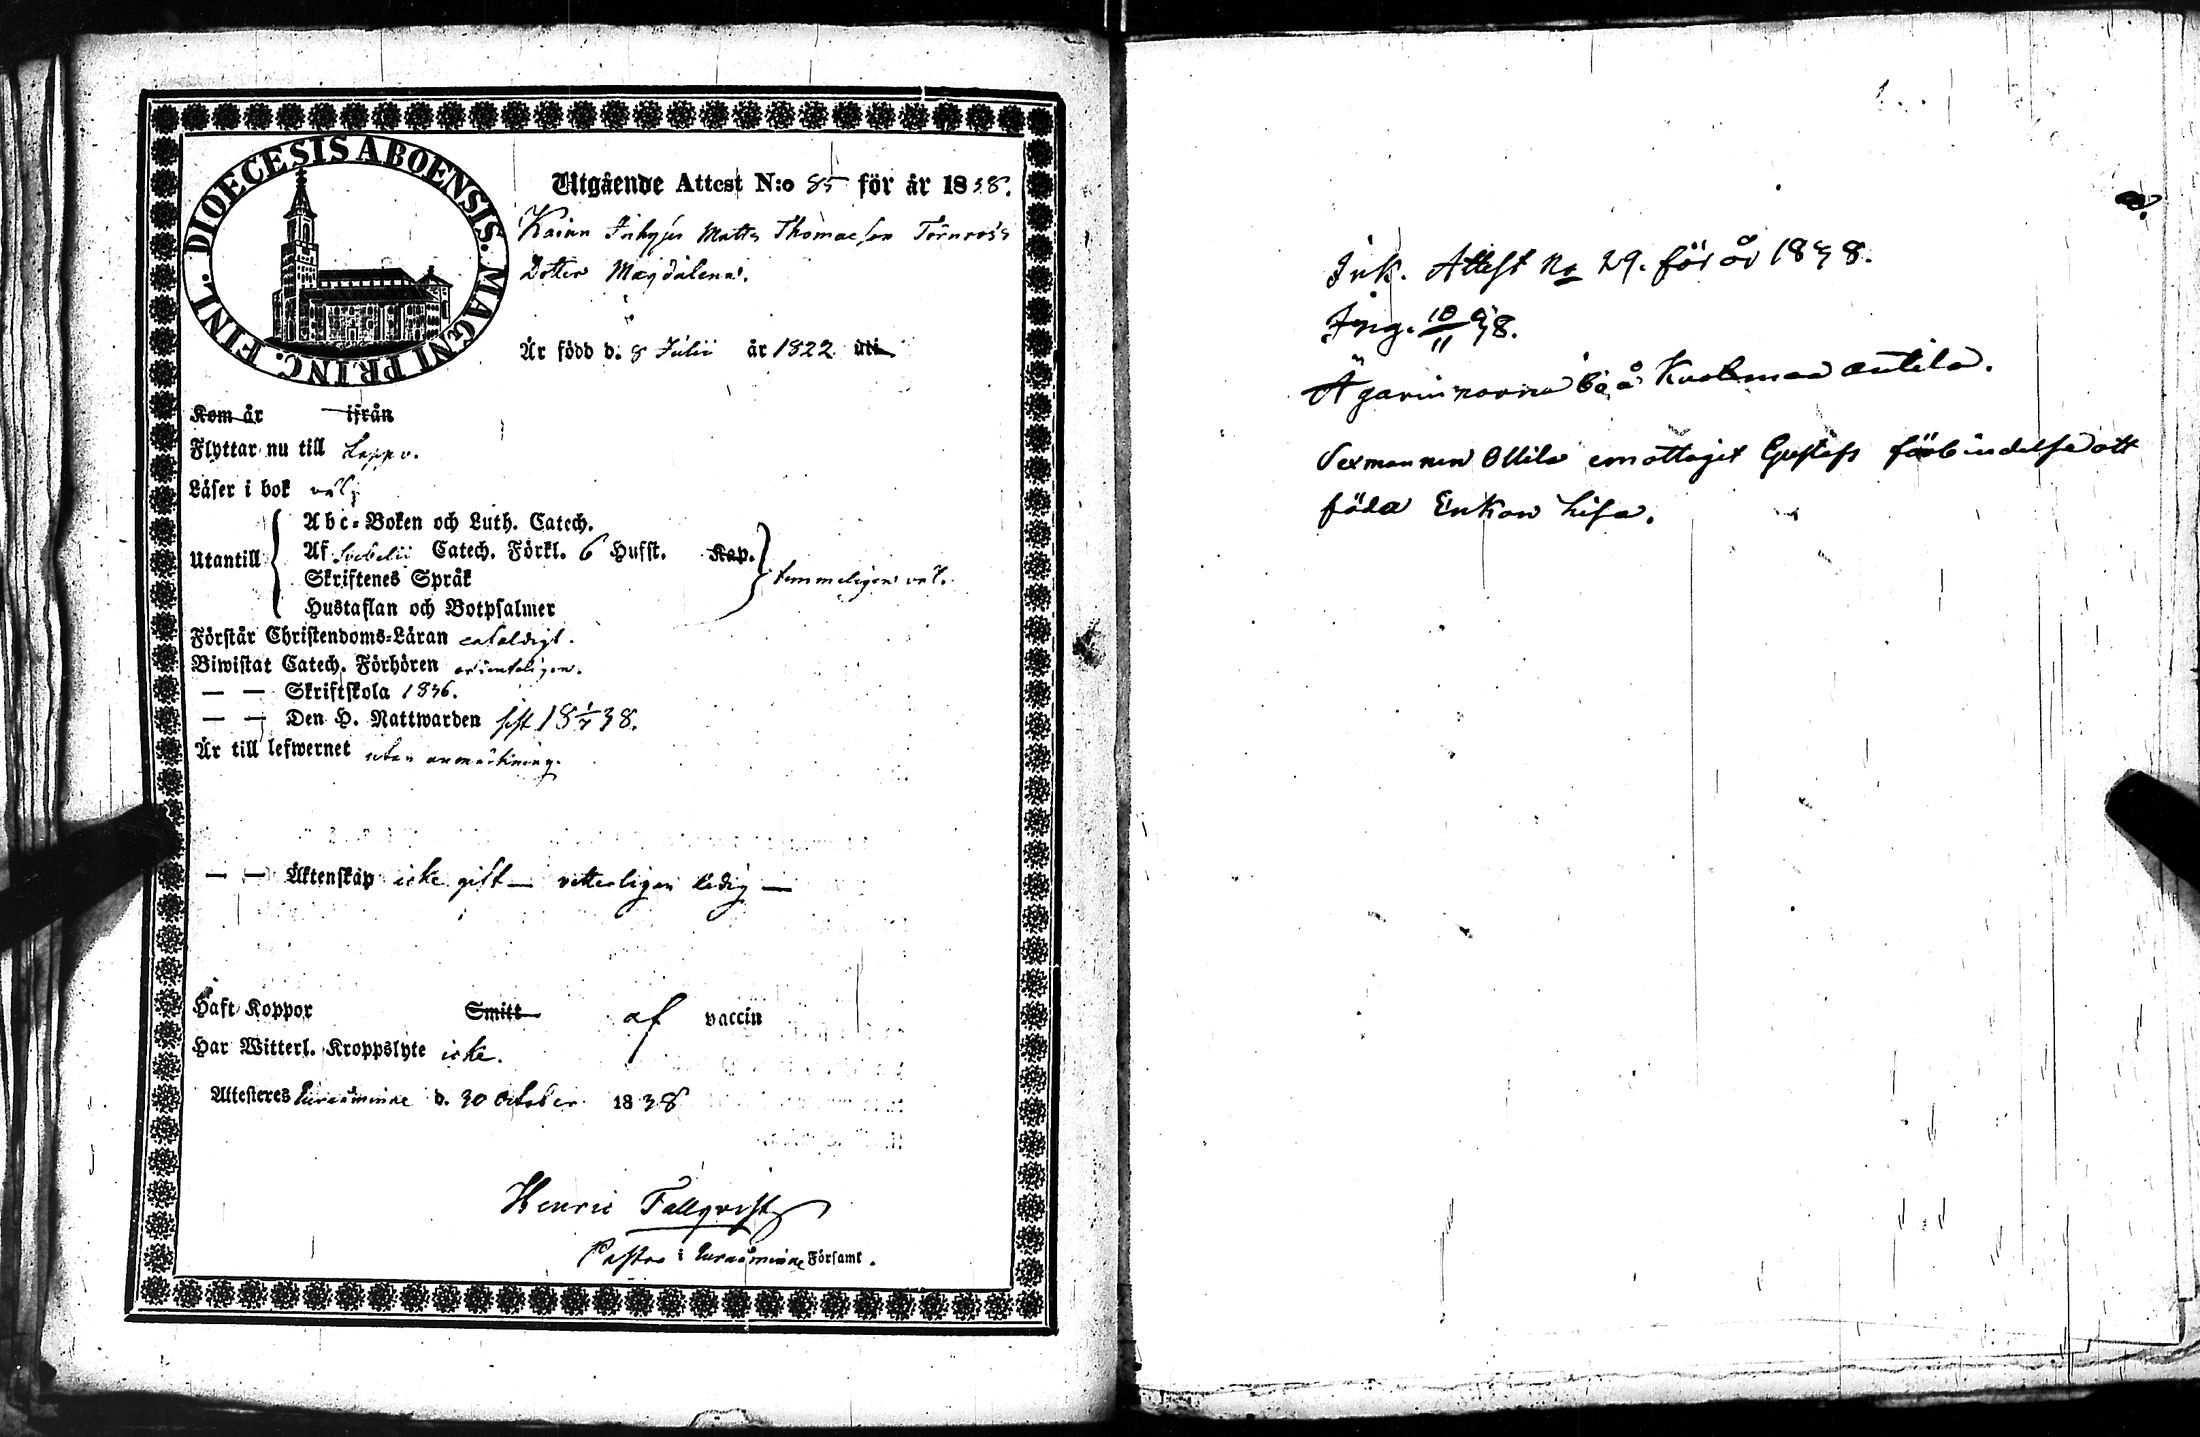 DIOECESIS ABOENSIS. MAGNI PRINC. FINL.
Utgående Attest N:o 85 för år 1838.
Matts Thomasson Törnroos
Dotter Magdalena.
Är född d. 8 Julii år 1822 uti
Kom år ifrån
Flyttar nu till Lappo.
Läser i bok väl,
Utantill
Abc-Boken och Luth. Catech.
Af Svebelii Catech. Förkl. 6 Hufst. Kap.
Skriftenes Språk
Hustaflan och Botpsalmer
temmeligen väl.
Förstår Christendoms-Läran
Biwistat Catech. Förhören ordenteligen.
— — Skriftskola 1836.
— — Den H. Nattwarden sist 18 1/7 38.
Är till lefwernet utan anmärkning.
— — Äktenskap icke gift — vitterligen ledig —
Haft Koppor Smitt af vaccin
Har Witterl. Kroppslyte icke.
Attesteres Euraåminne d. 30 October 1838
Henric Fallqvist
Pastor i Euraåminne Församl.
Ink. Attest No 29. för år 1838.
Ing. 10/11 38.
Ägarinnorna bo å
Sexmannen Ollila emottagit Gustafs förbindelse att
föda Enkan Lisa.